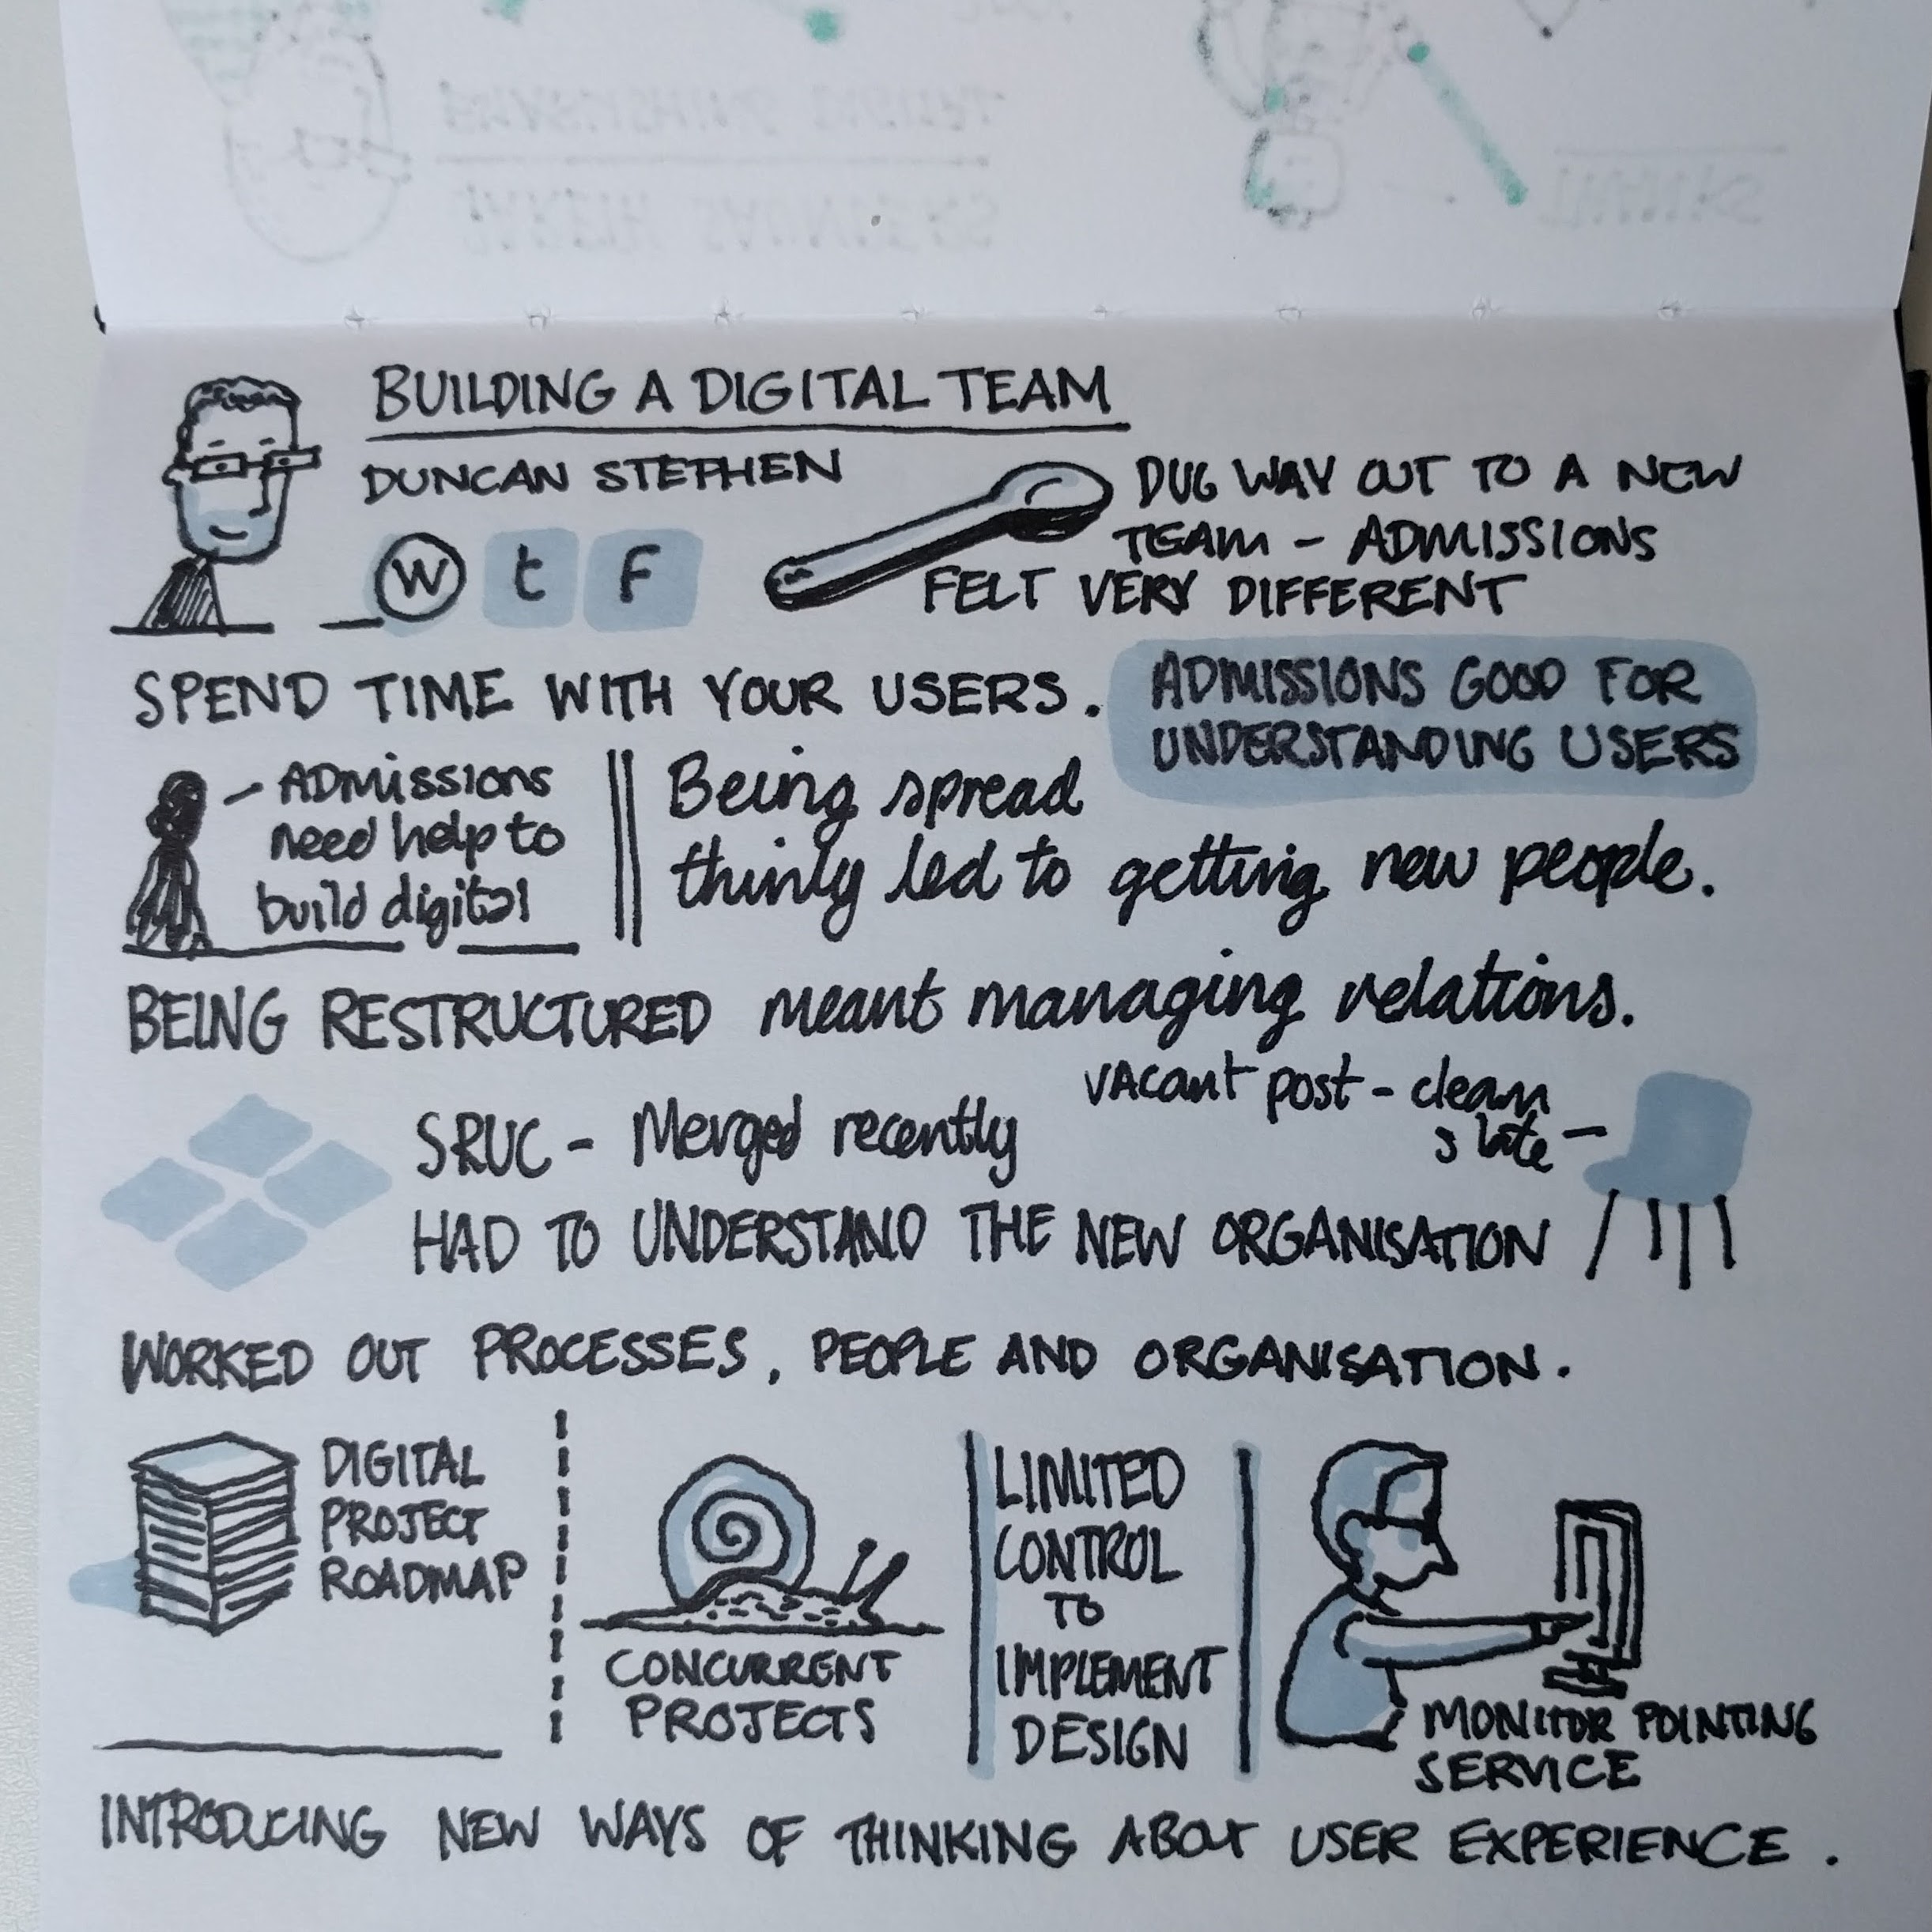 BUILDING A DIGITAL TEAM
DUNCAN STEPHEN
W t F
DUG WAY OUT TO A NEW
TEAM - ADMISSIONS
FELT VERY DIFFERENT
SPEND TIME WITH YOUR USERS.
ADMISSIONS GOOD FOR
UNDERSTANDING USERS
- ADMISSIONS
need help to
build digital
Being spread
thinly led to getting new people.
BEING RESTRUCTURED meant managing relations.
SRUC - Merged recently
VACANT post - clean
slate -
HAD TO UNDERSTAND THE NEW ORGANISATION
WORKED OUT PROCESSES, PEOPLE AND ORGANISATION.
DIGITAL
PROJECT
ROADMAP
CONCURRENT
PROJECTS
LIMITED
CONTROL
TO
IMPLEMENT
DESIGN
MONITOR POINTING
SERVICE
INTRODUCING NEW WAYS OF THINKING ABOUT USER EXPERIENCE.